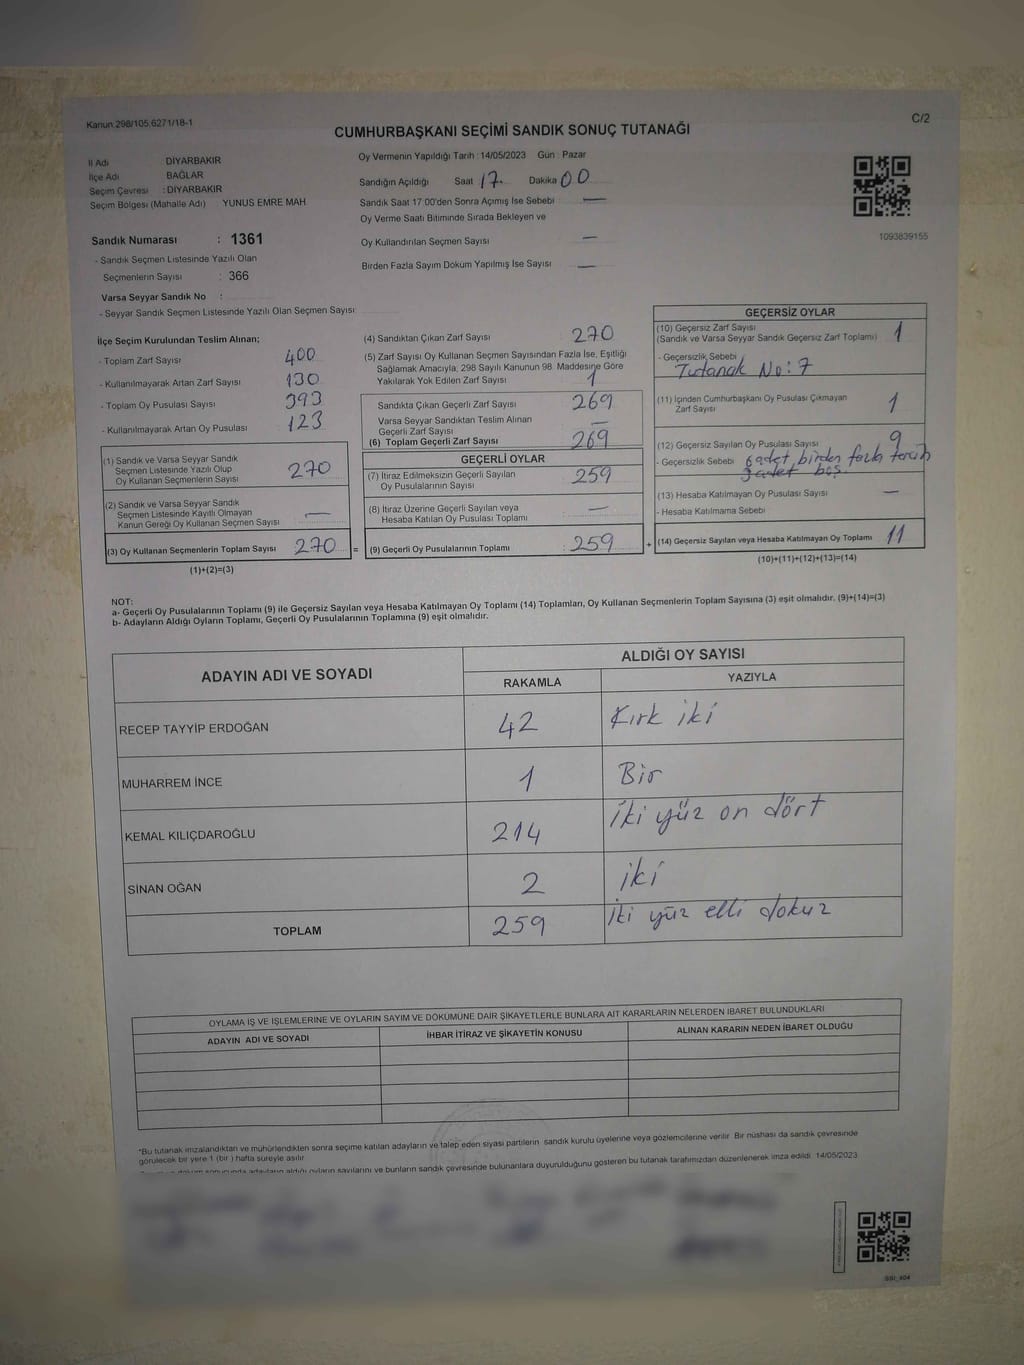 Kanun 298/105,6271/18-1
C/2
CUMHURBAŞKANI SEÇİMİ SANDIK SONUÇ TUTANAĞI
İl Adı DİYARBAKIR
İlçe Adı BAĞLAR
Seçim Çevresi : DİYARBAKIR
Seçim Bölgesi (Mahalle Adı) YUNUS EMRE MAH
Sandık Numarası : 1361
- Sandık Seçmen Listesinde Yazılı Olan
Seçmenlerin Sayısı : 366
Varsa Seyyar Sandık No :
- Seyyar Sandık Seçmen Listesinde Yazılı Olan Seçmen Sayısı:
Oy Vermenin Yapıldığı Tarih : 14/05/2023 Gün : Pazar
Sandığın Açıldığı Saat 17 Dakika 00
Sandık Saat 17:00'den Sonra Açmış İse Sebebi —
Oy Verme Saati Bitiminde Sırada Bekleyen ve
Oy Kullandırılan Seçmen Sayısı —
Birden Fazla Sayım Döküm Yapılmış İse Sayısı —
1093839155
İlçe Seçim Kurulundan Teslim Alınan;
- Toplam Zarf Sayısı 400
- Kullanılmayarak Artan Zarf Sayısı 130
- Toplam Oy Pusulası Sayısı 393
- Kullanılmayarak Artan Oy Pusulası 123
(1) Sandık ve Varsa Seyyar Sandık
Seçmen Listesinde Yazılı Olup
Oy Kullanan Seçmenlerin Sayısı 270
(2) Sandık ve Varsa Seyyar Sandık
Seçmen Listesinde Kayıtlı Olmayan
Kanun Gereği Oy Kullanan Seçmen Sayısı —
(3) Oy Kullanan Seçmenlerin Toplam Sayısı 270 =
(1)+(2)=(3)
(4) Sandıktan Çıkan Zarf Sayısı 270
(5) Zarf Sayısı Oy Kullanan Seçmen Sayısından Fazla İse, Eşitliği
Sağlamak Amacıyla, 298 Sayılı Kanunun 98. Maddesine Göre
Yakılarak Yok Edilen Zarf Sayısı 1
Sandıkta Çıkan Geçerli Zarf Sayısı 269
Varsa Seyyar Sandıktan Teslim Alınan
Geçerli Zarf Sayısı —
(6) Toplam Geçerli Zarf Sayısı 269
GEÇERLİ OYLAR
(7) İtiraz Edilmeksizin Geçerli Sayılan
Oy Pusulalarının Sayısı 259
(8) İtiraz Üzerine Geçerli Sayılan veya
Hesaba Katılan Oy Pusulası Toplamı —
(9) Geçerli Oy Pusulalarının Toplamı : 259 +
GEÇERSİZ OYLAR
(10) Geçersiz Zarf Sayısı
(Sandık ve Varsa Seyyar Sandık Geçersiz Zarf Toplamı) 1
- Geçersizlik Sebebi
Tutanak No: 7
(11) İçinden Cumhurbaşkanı Oy Pusulası Çıkmayan
Zarf Sayısı 1
(12) Geçersiz Sayılan Oy Pusulası Sayısı 9
- Geçersizlik Sebebi 6 adet birden fazla tercih
3 adet boş
(13) Hesaba Katılmayan Oy Pusulası Sayısı —
- Hesaba Katılmama Sebebi
(14) Geçersiz Sayılan veya Hesaba Katılmayan Oy Toplamı 11
(10)+(11)+(12)+(13)=(14)
NOT:
a- Geçerli Oy Pusulalarının Toplamı (9) ile Geçersiz Sayılan veya Hesaba Katılmayan Oy Toplamı (14) Toplamları, Oy Kullanan Seçmenlerin Toplam Sayısına (3) eşit olmalıdır. (9)+(14)=(3)
b- Adayların Aldığı Oyların Toplamı, Geçerli Oy Pusulalarının Toplamına (9) eşit olmalıdır.
ADAYIN ADI VE SOYADI ALDIĞI OY SAYISI
RAKAMLA YAZIYLA
RECEP TAYYİP ERDOĞAN 42 Kırk iki
MUHARREM İNCE 1 Bir
KEMAL KILIÇDAROĞLU 214 İki yüz on dört
SİNAN OĞAN 2 iki
TOPLAM 259 İki yüz elli dokuz
OYLAMA İŞ VE İŞLEMLERİNE VE OYLARIN SAYIM VE DÖKÜMÜNE DAİR ŞİKAYETLERLE BUNLARA AİT KARARLARIN NELERDEN İBARET BULUNDUKLARI
ADAYIN ADI VE SOYADI İHBAR İTİRAZ VE ŞİKAYETİN KONUSU ALINAN KARARIN NEDEN İBARET OLDUĞU
*Bu tutanak imzalandıktan ve mühürlendikten sonra seçime katılan adayların ve talep eden siyasi partilerin sandık kurulu üyelerine veya gözlemcilerine verilir. Bir nüshası da sandık çevresinde
görülecek bir yere 1 (bir) hafta süreyle asılır.
döküm sonucunda adayların aldığı oyların sayılarını ve bunların sandık çevresinde bulunanlara duyurulduğunu gösteren bu tutanak tarafımızdan düzenlenerek imza edildi. 14/05/2023
SSI_404